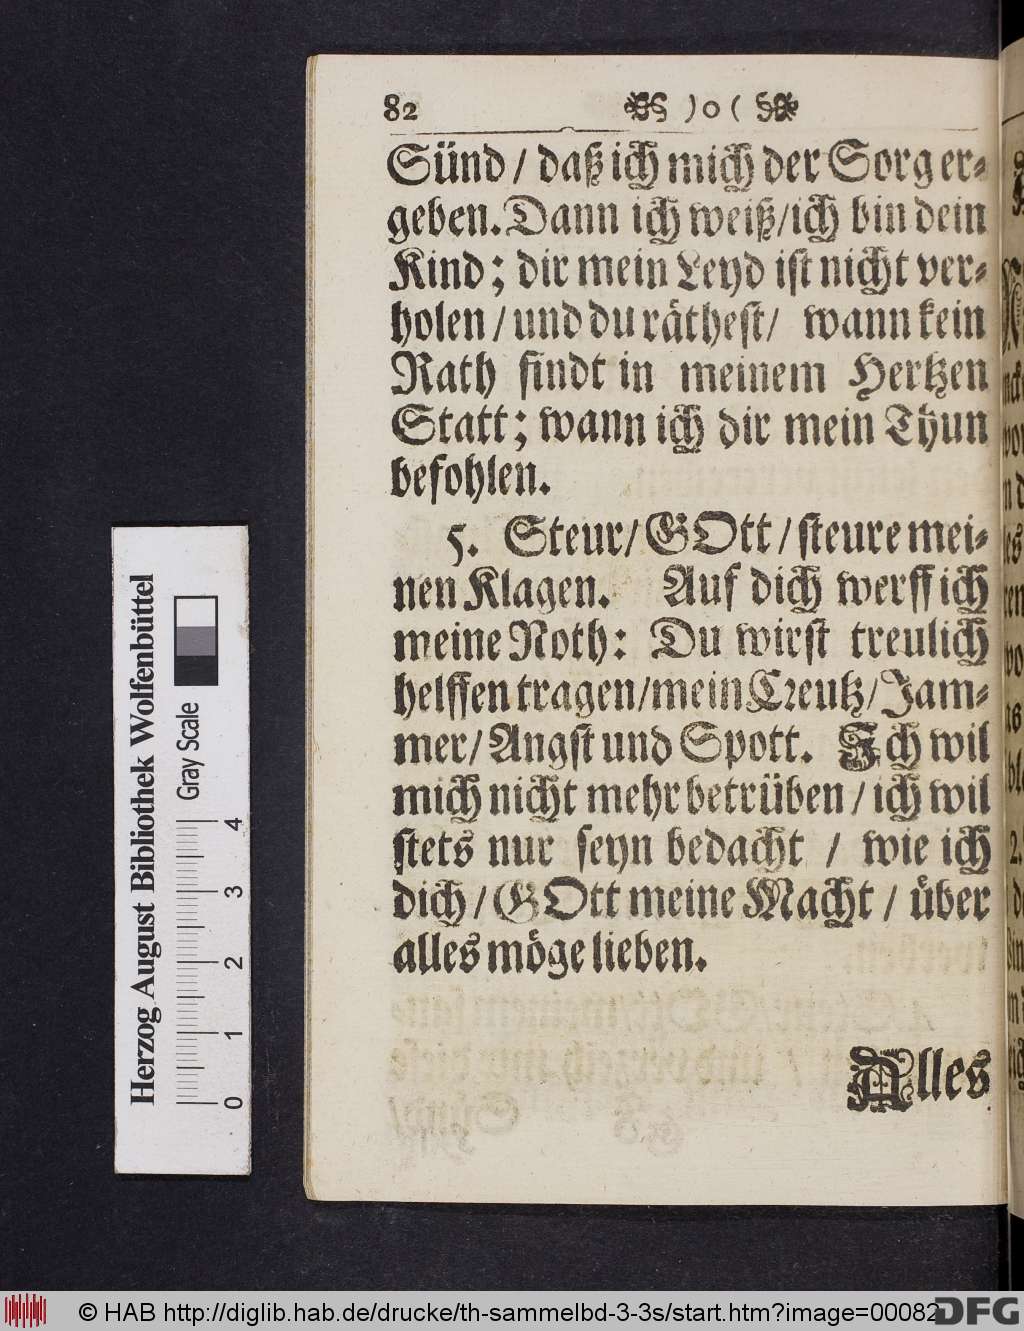 82 )o(
Sünd / daß ich mich der Sorg er-
geben. Dann ich weiß/ich bin dein
Kind; dir mein Leyd ist nicht ver-
holen / und du räthest/ wann kein
Rath findt in meinem Hertzen
Statt; wann ich dir mein Thun
befohlen.
5. Steur/ GOtt / steure mei-
nen Klagen. Auf dich werff ich
meine Noth: Du wirst treulich
helffen tragen/mein Creutz/ Jam-
mer/ Angst und Spott. Ich wil
mich nicht mehr betrüben / ich wil
stets nur seyn bedacht / wie ich
dich / GOtt meine Macht / über
alles möge lieben.
Alles
Herzog August Bibliothek Wolfenbüttel
Gray Scale
0 1 2 3 4
© HAB http://diglib.hab.de/drucke/th-sammelbd-3-3s/start.htm?image=00082
DFG